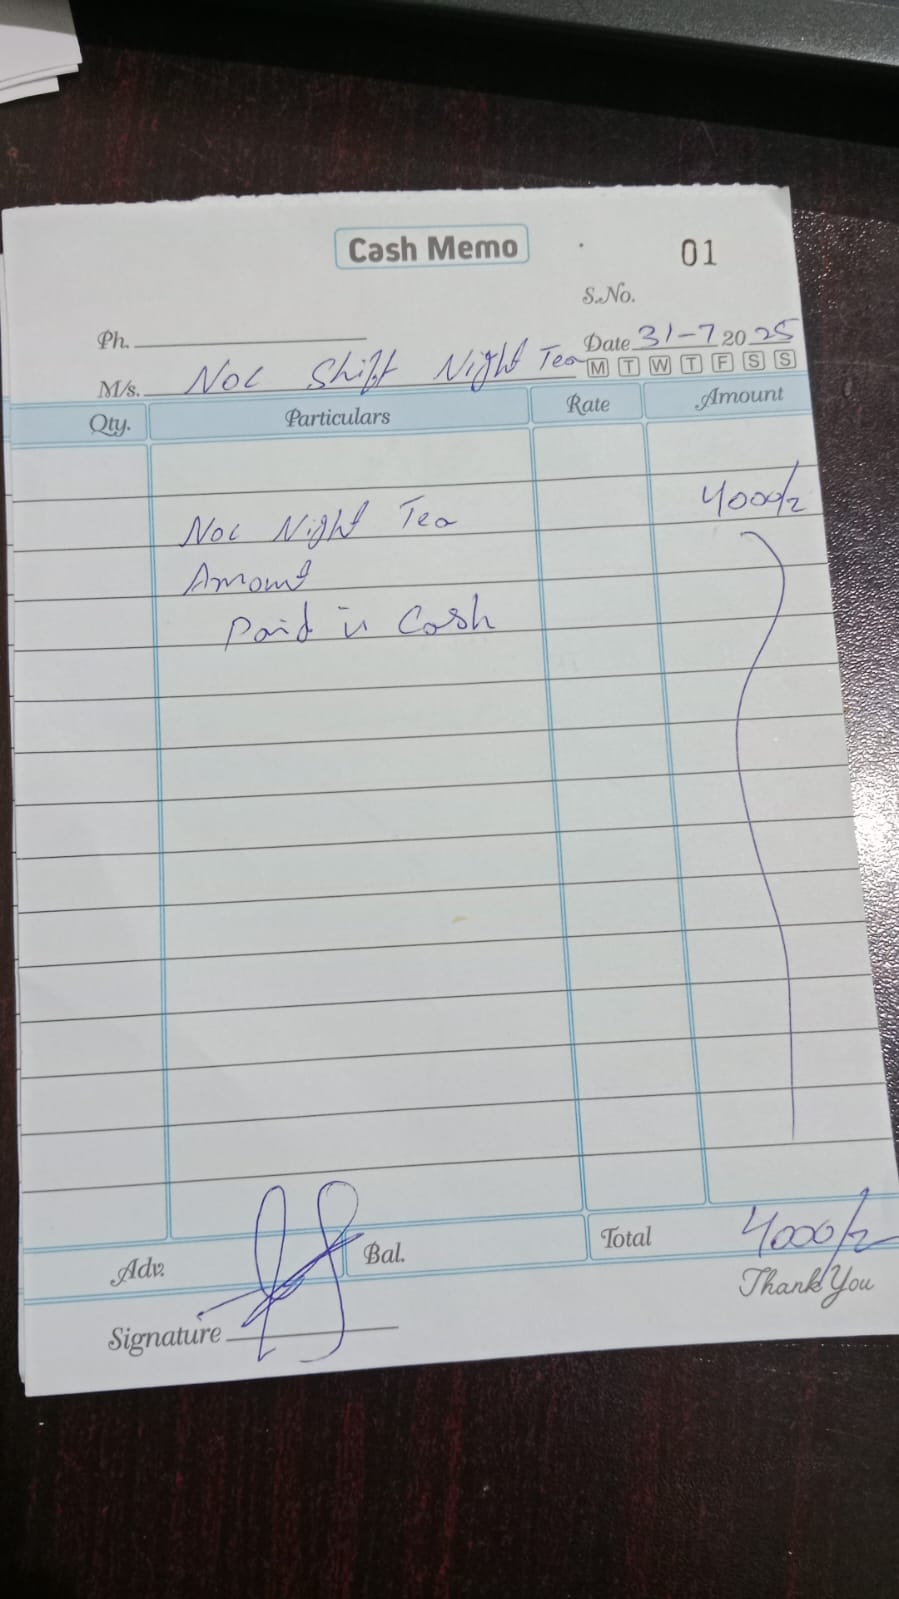 Cash Memo
01
S.No.
Ph.
Date 31-7 2025
M/s. Noc Shift Night Tea
M T W T F S S
Qty. Particulars Rate Amount
Noc Night Tea 4000/=
Amount
Paid in Cash
Adv. Bal. Total 4000/=
Thank You
Signature